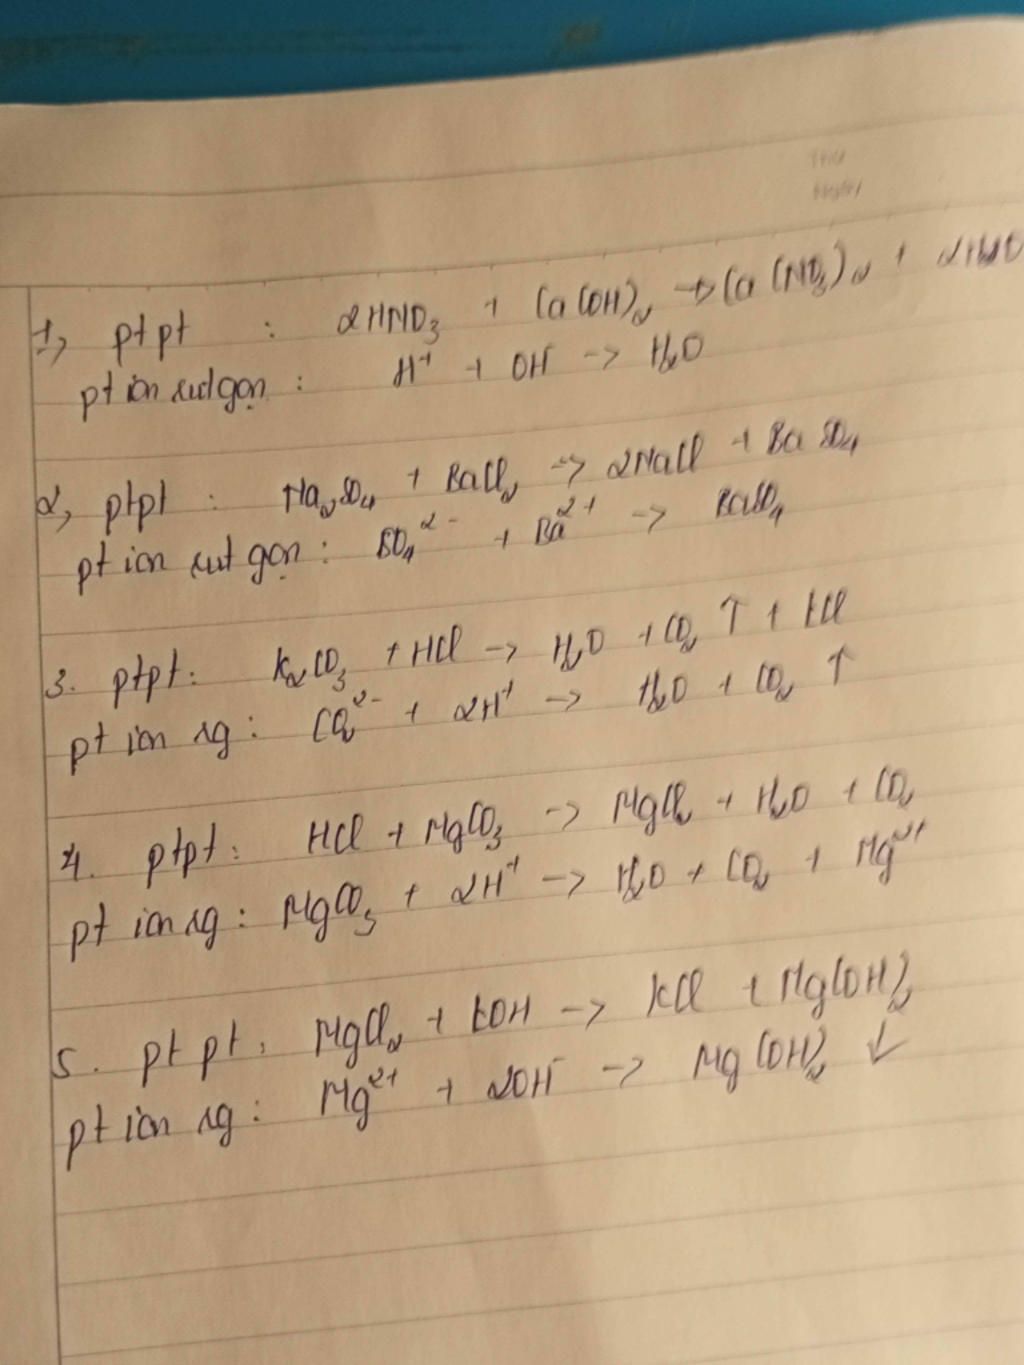 1, ptpt : 2HNO₃ + Ca(OH)₂ → Ca(NO₃)₂ + 2H₂O
pt ion rut gọn : H⁺ + OH⁻ → H₂O
2, ptpt : Na₂SO₄ + BaCl₂ → 2NaCl + BaSO₄
pt ion rut gọn : SO₄²⁻ + Ba²⁺ → BaSO₄
3. ptpt : K₂CO₃ + HCl → H₂O + CO₂ ↑ + KCl
pt ion rg : CO₂²⁻ + 2H⁺ → H₂O + CO₂ ↑
4. ptpt : HCl + MgCO₃ → MgCl₂ + H₂O + CO₂
pt ion rg : MgCO₃ + 2H⁺ → H₂O + CO₂ + Mg²⁺
5. ptpt : MgCl₂ + KOH → KCl + Mg(OH)₂
pt ion rg : Mg²⁺ + 2OH⁻ → Mg(OH)₂ ↓